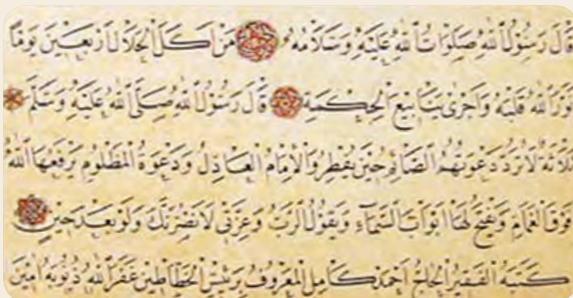 قَالَ رَسُولُ اللهِ صَلَوَاتُ اللهِ عَلَيْهِ وَسَلَامُهُ مَنْ اَكَلَ الْحَلَالَ اَرْبَعِينَ يَوْمًا
نَوَّرَ اللهُ قَلْبَهُ وَاَجْرٰى يَنَابِيعَ الْحِكْمَةِ قَالَ رَسُولُ اللهِ صَلَّى اللهُ عَلَيْهِ وَسَلَّمَ
ثَلَاثَةٌ لَا تُرَدُّ دَعْوَتُهُمُ الصَّائِمُ حِينَ يُفْطِرُ وَالْاِمَامُ الْعَادِلُ وَدَعْوَةُ الْمَظْلُومِ يَرْفَعُهَا اللهُ
فَوْقَ الْغَمَامِ وَيَفْتَحُ لَهَا اَبْوَابَ السَّمَاءِ وَيَقُولُ الرَّبُّ وَعِزَّتِى لَاَنْصُرَنَّكَ وَلَوْ بَعْدَ حِينٍ
كَتَبَهُ الْفَقِيرُ الْحَاجُّ اَحْمَدُ كَامِلُ الْمَعْرُوفُ بِرَئِيسِ الْخَطَّاطِينَ غَفَرَ اللهُ ذُنُوبَهُ اٰمِينَ